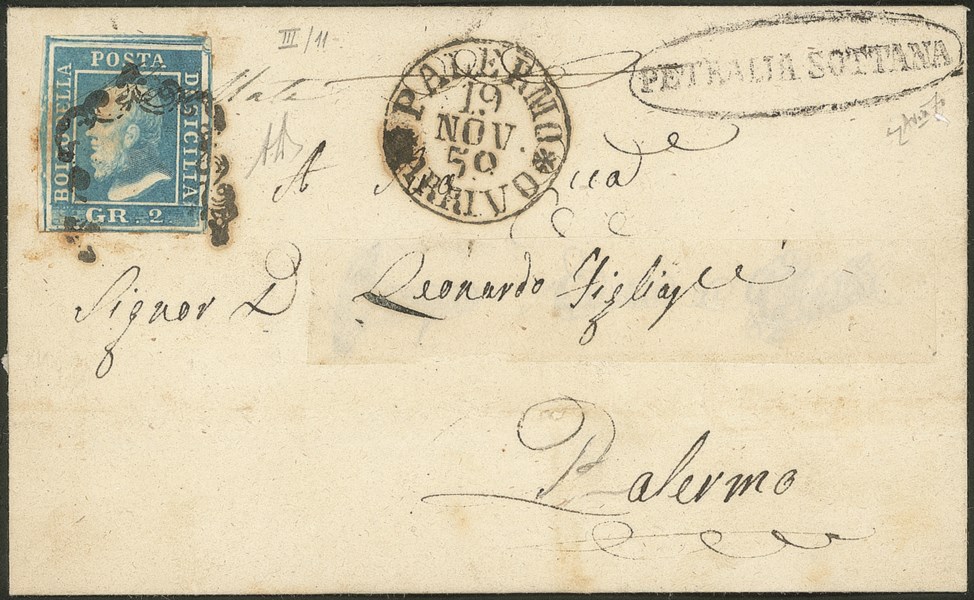 POSTA
BOLLO DELLA
DI SICILIA
GR. 2.
III/11
PALERMO
19
NOV.
59
ARRIVO
PETRALIA SOTTANA
A
Signor D Leonardo
Palermo